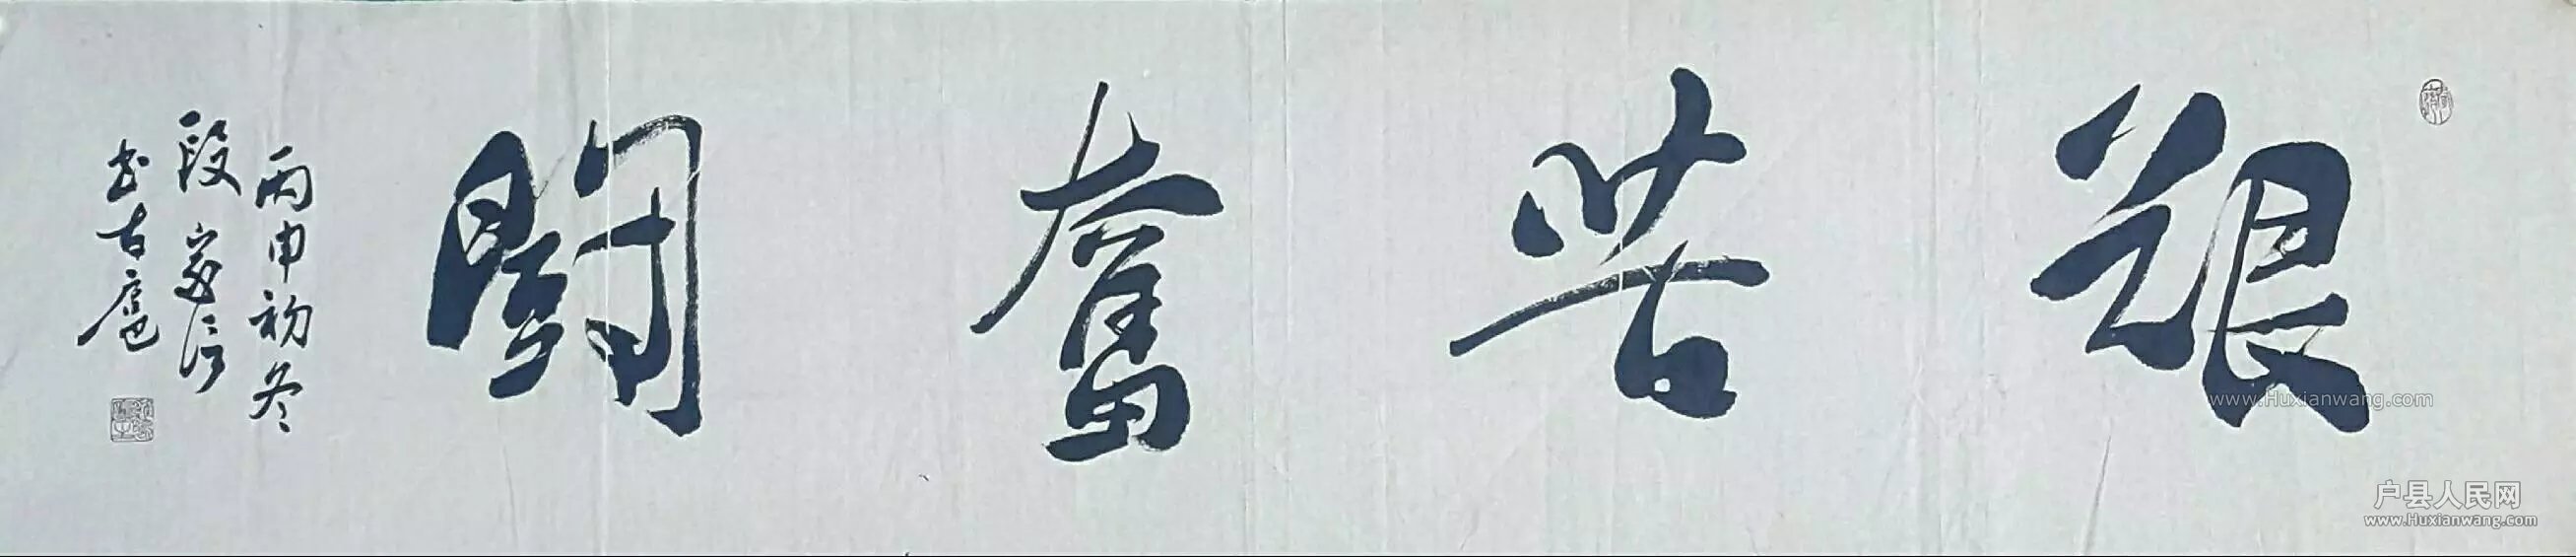 艱苦奮鬥
丙申初冬
段家信
書古扈
www.Huxianwang.com
户县人民网
www.Huxianwang.com